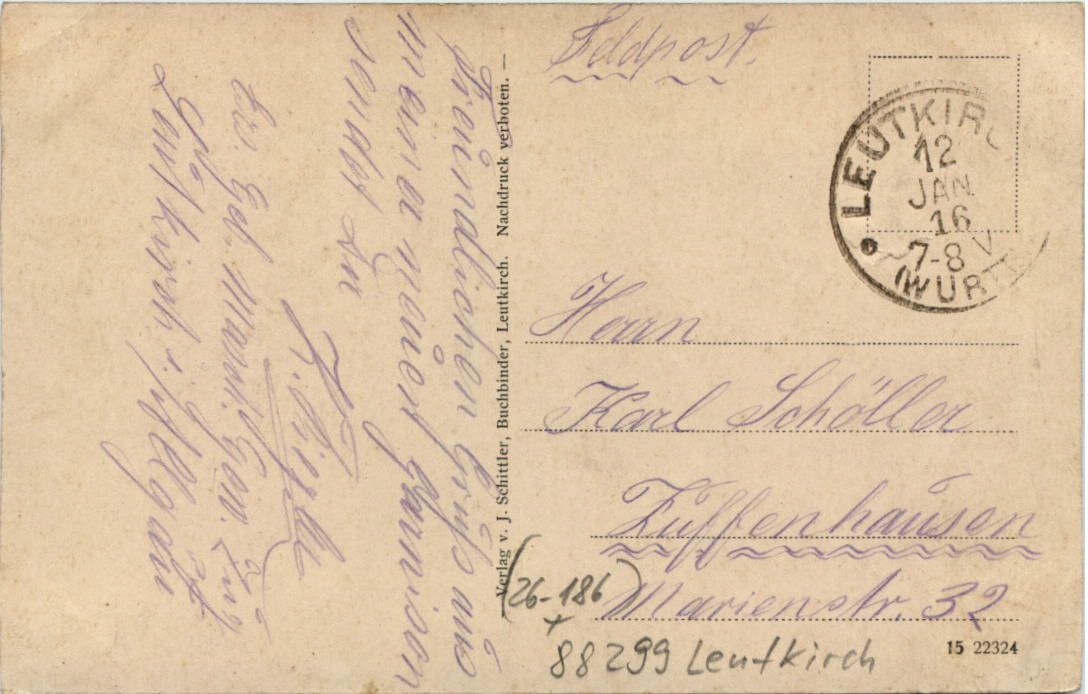 Feldpost.
LEUTKIRC
12
JAN
16
7-8 V
(WÜRTT
Herrn
Karl Schöller
Zuffenhausen
Marienstr. 32
Verlag v. J. Schittler, Buchbinder, Leutkirch. Nachdruck verboten. —
Freundlichen Gruß aus
meiner neuen Garnison
sendet Dir
Leutkirch i. Allgäu
(26-186)
+
88299 Leutkirch
15 22324